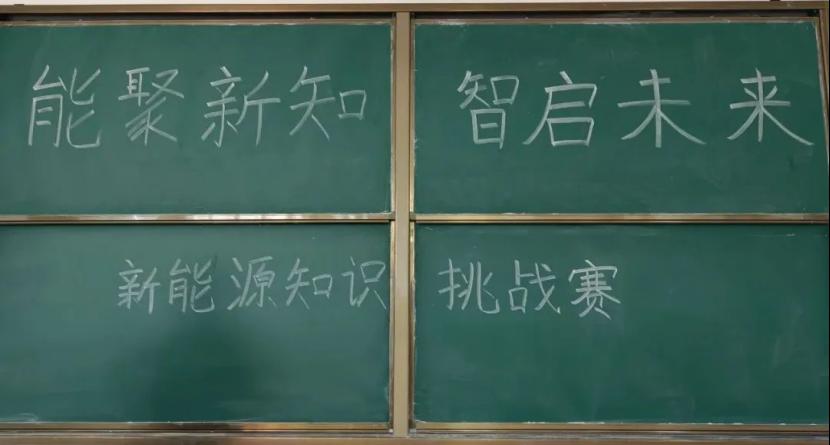 能聚新知 智启未来
新能源知识 挑战赛